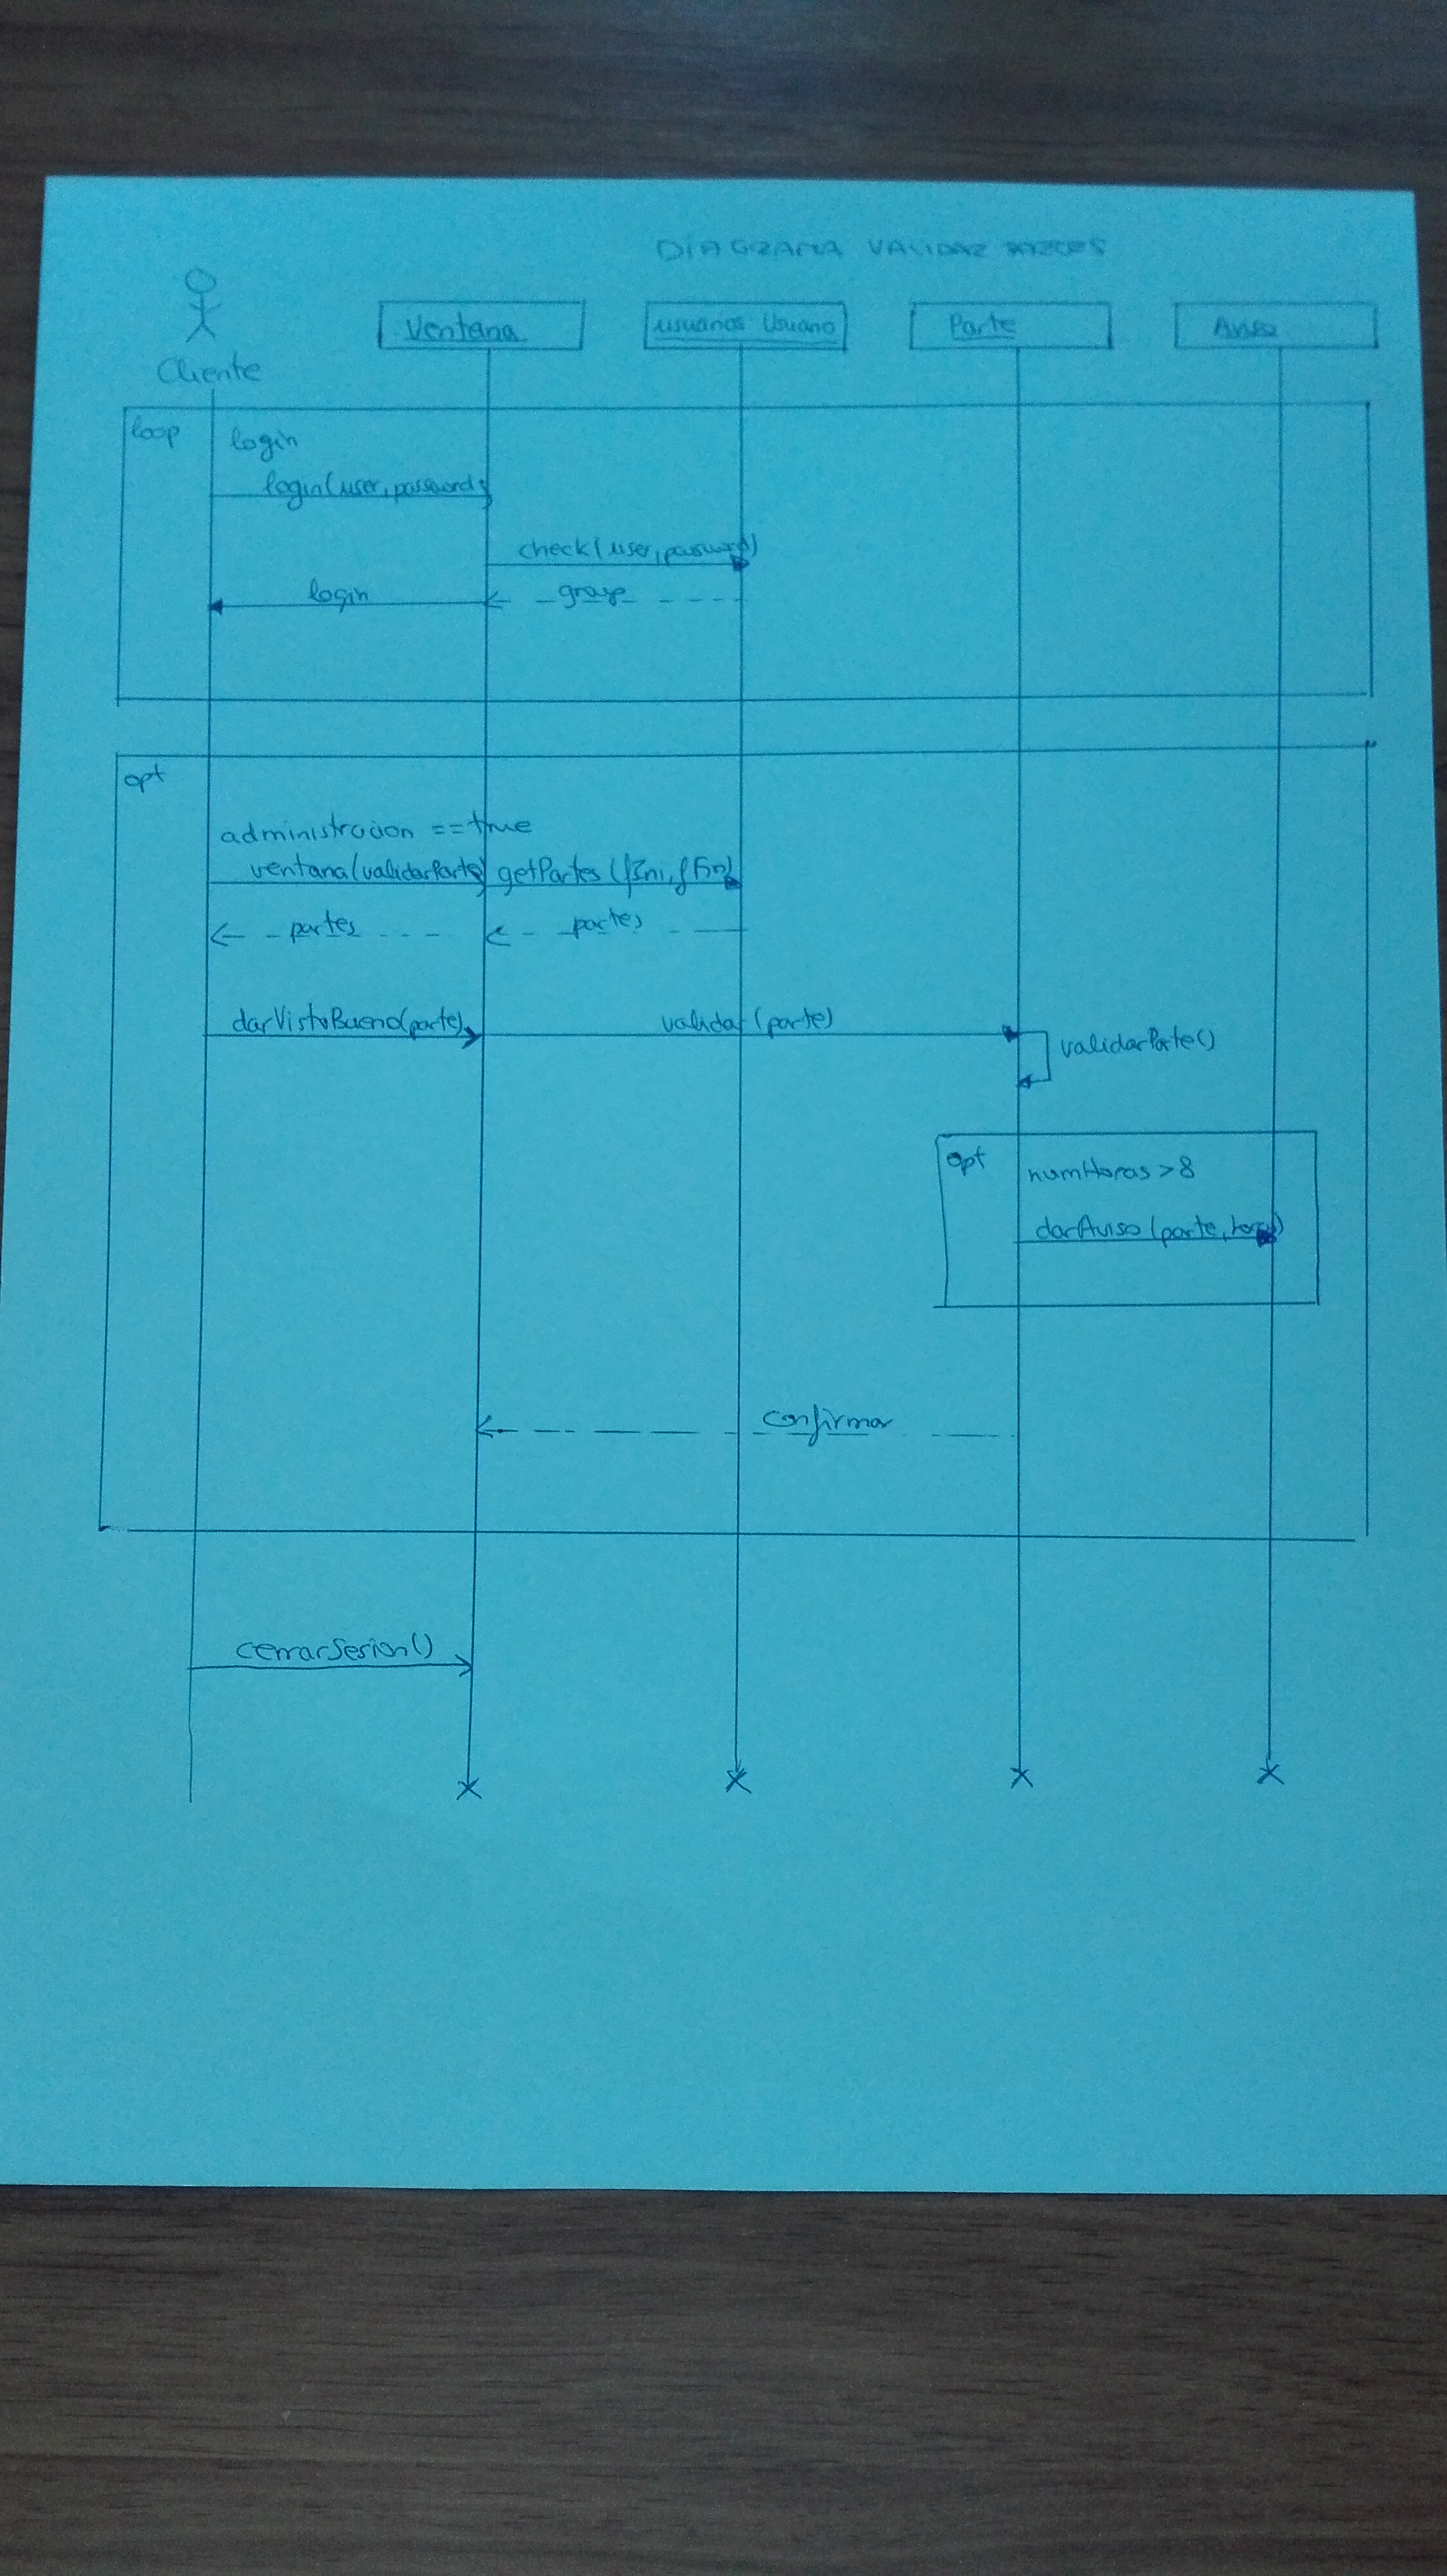 DIAGRAMA VALIDAR PARTES
Cliente
Ventana
usuarios Usuario
Parte
Aviso
loop
login
login(user,password)
check(user,password)
login
opt
administracion ==true
ventana(validarParte)
getPartes(fIni,fFin)
partes
partes
darVistoBueno(parte)
validar(parte)
validarParte()
opt
numHoras >8
darAviso(parte,
confirmar
cerrarSesion()